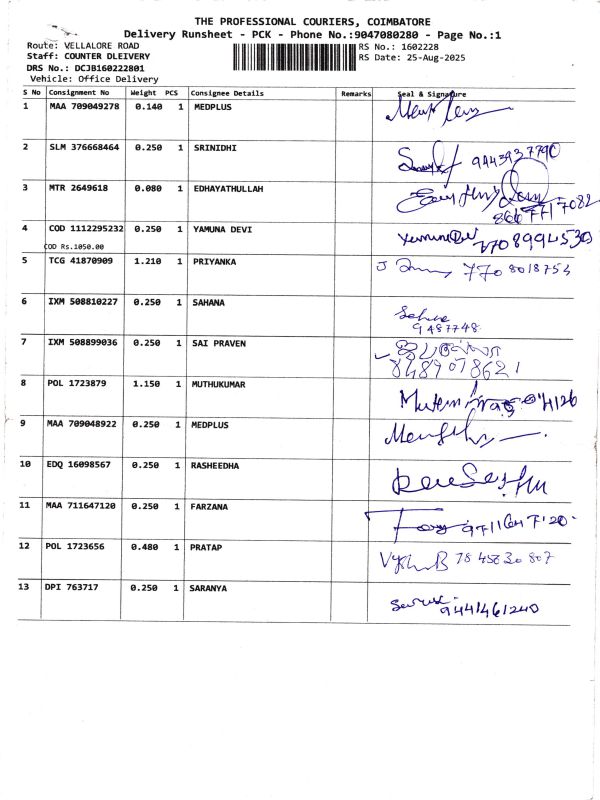 THE PROFESSIONAL COURIERS, COIMBATORE
Delivery Runsheet - PCK - Phone No.:9047080280 - Page No.:1
Route: VELLALORE ROAD RS No.: 1602228
Staff: COUNTER DLEIVERY RS Date: 25-Aug-2025
DRS No.: DCJB160222801
Vehicle: Office Delivery
S No Consignment No Weight PCS Consignee Details Remarks Seal & Signature
1 MAA 709049278 0.140 1 MEDPLUS
2 SLM 376668464 0.250 1 SRINIDHI 9443937790
3 MTR 2649618 0.080 1 EDHAYATHULLAH
4 COD 1112295232 0.250 1 YAMUNA DEVI
COD Rs.1050.00
5 TCG 41870909 1.210 1 PRIYANKA 770 8018753
6 IXM 508810227 0.250 1 SAHANA
9487748
7 IXM 508899036 0.250 1 SAI PRAVEN
8489078621
8 POL 1723879 1.150 1 MUTHUKUMAR
9 MAA 709048922 0.250 1 MEDPLUS
10 EDQ 16098567 0.250 1 RASHEEDHA
11 MAA 711647120 0.250 1 FARZANA 9711647120
12 POL 1723656 0.480 1 PRATAP 7845830807
13 DPI 763717 0.250 1 SARANYA
9441461240